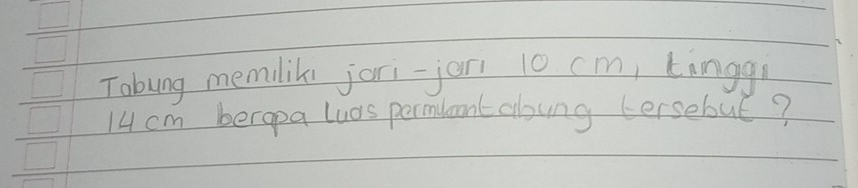 Tabung memiliki jari-jari 10 cm, tinggi
14 cm berapa luas permukaan tabung tersebut?